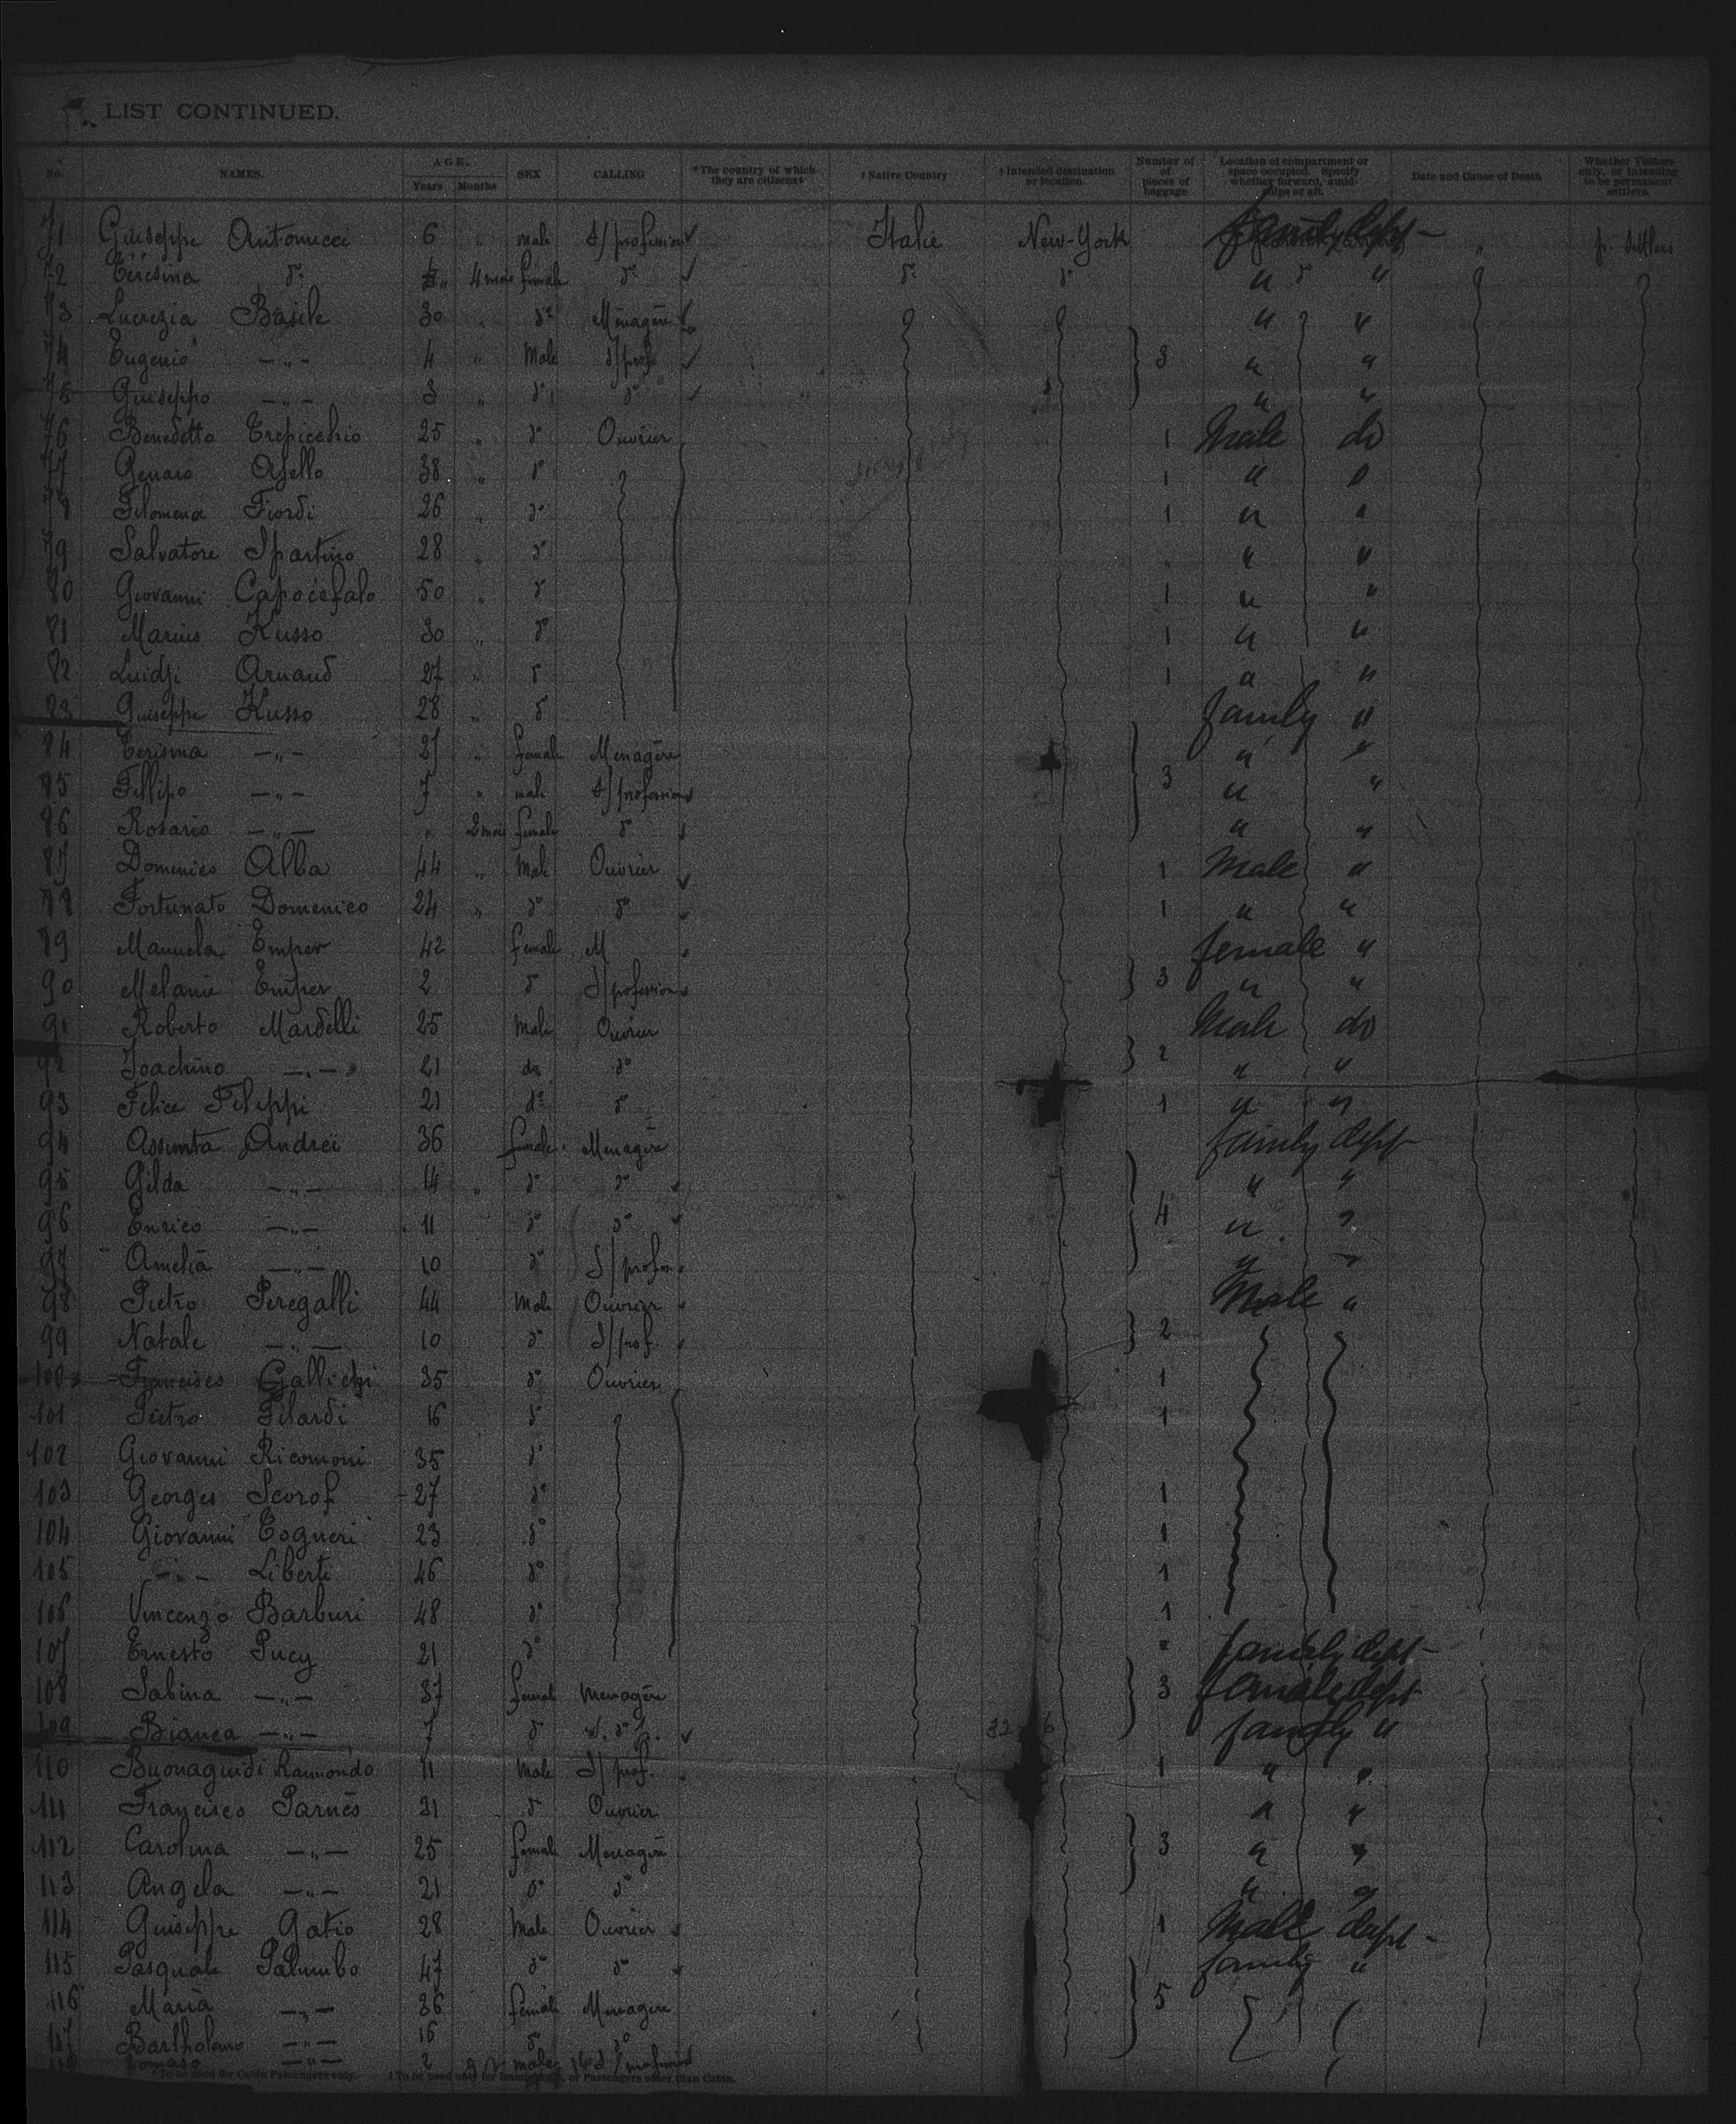 LIST CONTINUED.
No. NAMES. AGE. Years Months SEX CALLING *The country of which they are citizens † Native Country † Intended destination or location. Number of pieces of baggage Location of compartment or space occupied. Specify whether forward, amidships or aft. Date and Cause of Death Whether Visitors only, or intending to be permanent settlers.
71 Giuseppe Antonucci 6 " male S/profession Italie New-York family dept - "
72 Teresina do 4 mois female do do do " do "
73 Lucrezia Basile 30 " do Ménagère " "
74 Eugenio -"- 4 " Male S/prof 3 " "
75 Guiseppo -"- 3 " do do " "
76 Benedetto Trepicchio 25 " do Ouvrier 1 Male do
77 Genaro Asello 38 " do 1 "
78 Filomena Fiordi 26 " do 1 " "
79 Salvatore Spartino 28 " do " " "
80 Giovanni Capocefalo 50 " do 1 " "
81 Marius Russo 30 " do 1 " "
82 Luidji Arnaud 27 " do 1 " "
83 Guiseppe Russo 28 " do family "
84 Terisina -"- 27 " female Menagère " "
85 Fillipo -"- 7 " male S/profession 3 " "
86 Rosario -"- " 2 mois female do " "
87 Domenico Alba 44 " Male Ouvrier 1 Male "
88 Fortunato Domenico 24 " do do 1 " "
89 Manuela Emper 42 female M female "
90 Melanie Emper 2 do S/profession 3 " "
91 Roberto Mardelli 25 Male Ouvrier Male do
92 Joachino -"- 21 do do 2 " "
93 Felice Filippi 21 do do 1 " "
94 Assunta Andreï 36 female Menagère family dept
95 Gilda -"- 14 " do do " "
96 Enrico -"- 11 do do 4 " "
97 Amelia -"- 10 do S/profon " "
98 Pietro Peregalli 44 Male Ouvrier Male "
99 Natale -"- 10 do S/prof. 2
100 Francisco Gallichi 35 do Ouvrier 1
101 Pietro Pilardi 16 do 1
102 Giovanni Ricomoni 35 do
103 Georges Scorof 27 do 1
104 Giovanni Togneri 23 do 1
105 -"- Liberti 46 do 1
106 Vincenzo Barburi 48 do 1
107 Ernesto Pucy 21 do " family dept -
108 Sabina -"- 37 female Menagère 3 female dept
109 Bianca -"- 7 do 32 6 family "
110 Buonaguidi Raimondo 11 Male S/prof. 1 " "
111 Francisco Parnès 31 do Ouvrier " "
112 Carolina -"- 25 female Menagère 3 " "
113 Angela -"- 21 do do " "
114 Guiseppe Gatio 28 Male Ouvrier 1 Male dept -
115 Pasquale Palumbo 47 do do family "
116 Maria -"- 36 female Menagère 5
117 Bartholomo -"- 16 do do
Tomaso -"- 2 male
* To be used for Cabin Passengers only. † To be used only for Immigrants, or Passengers other than Cabin.